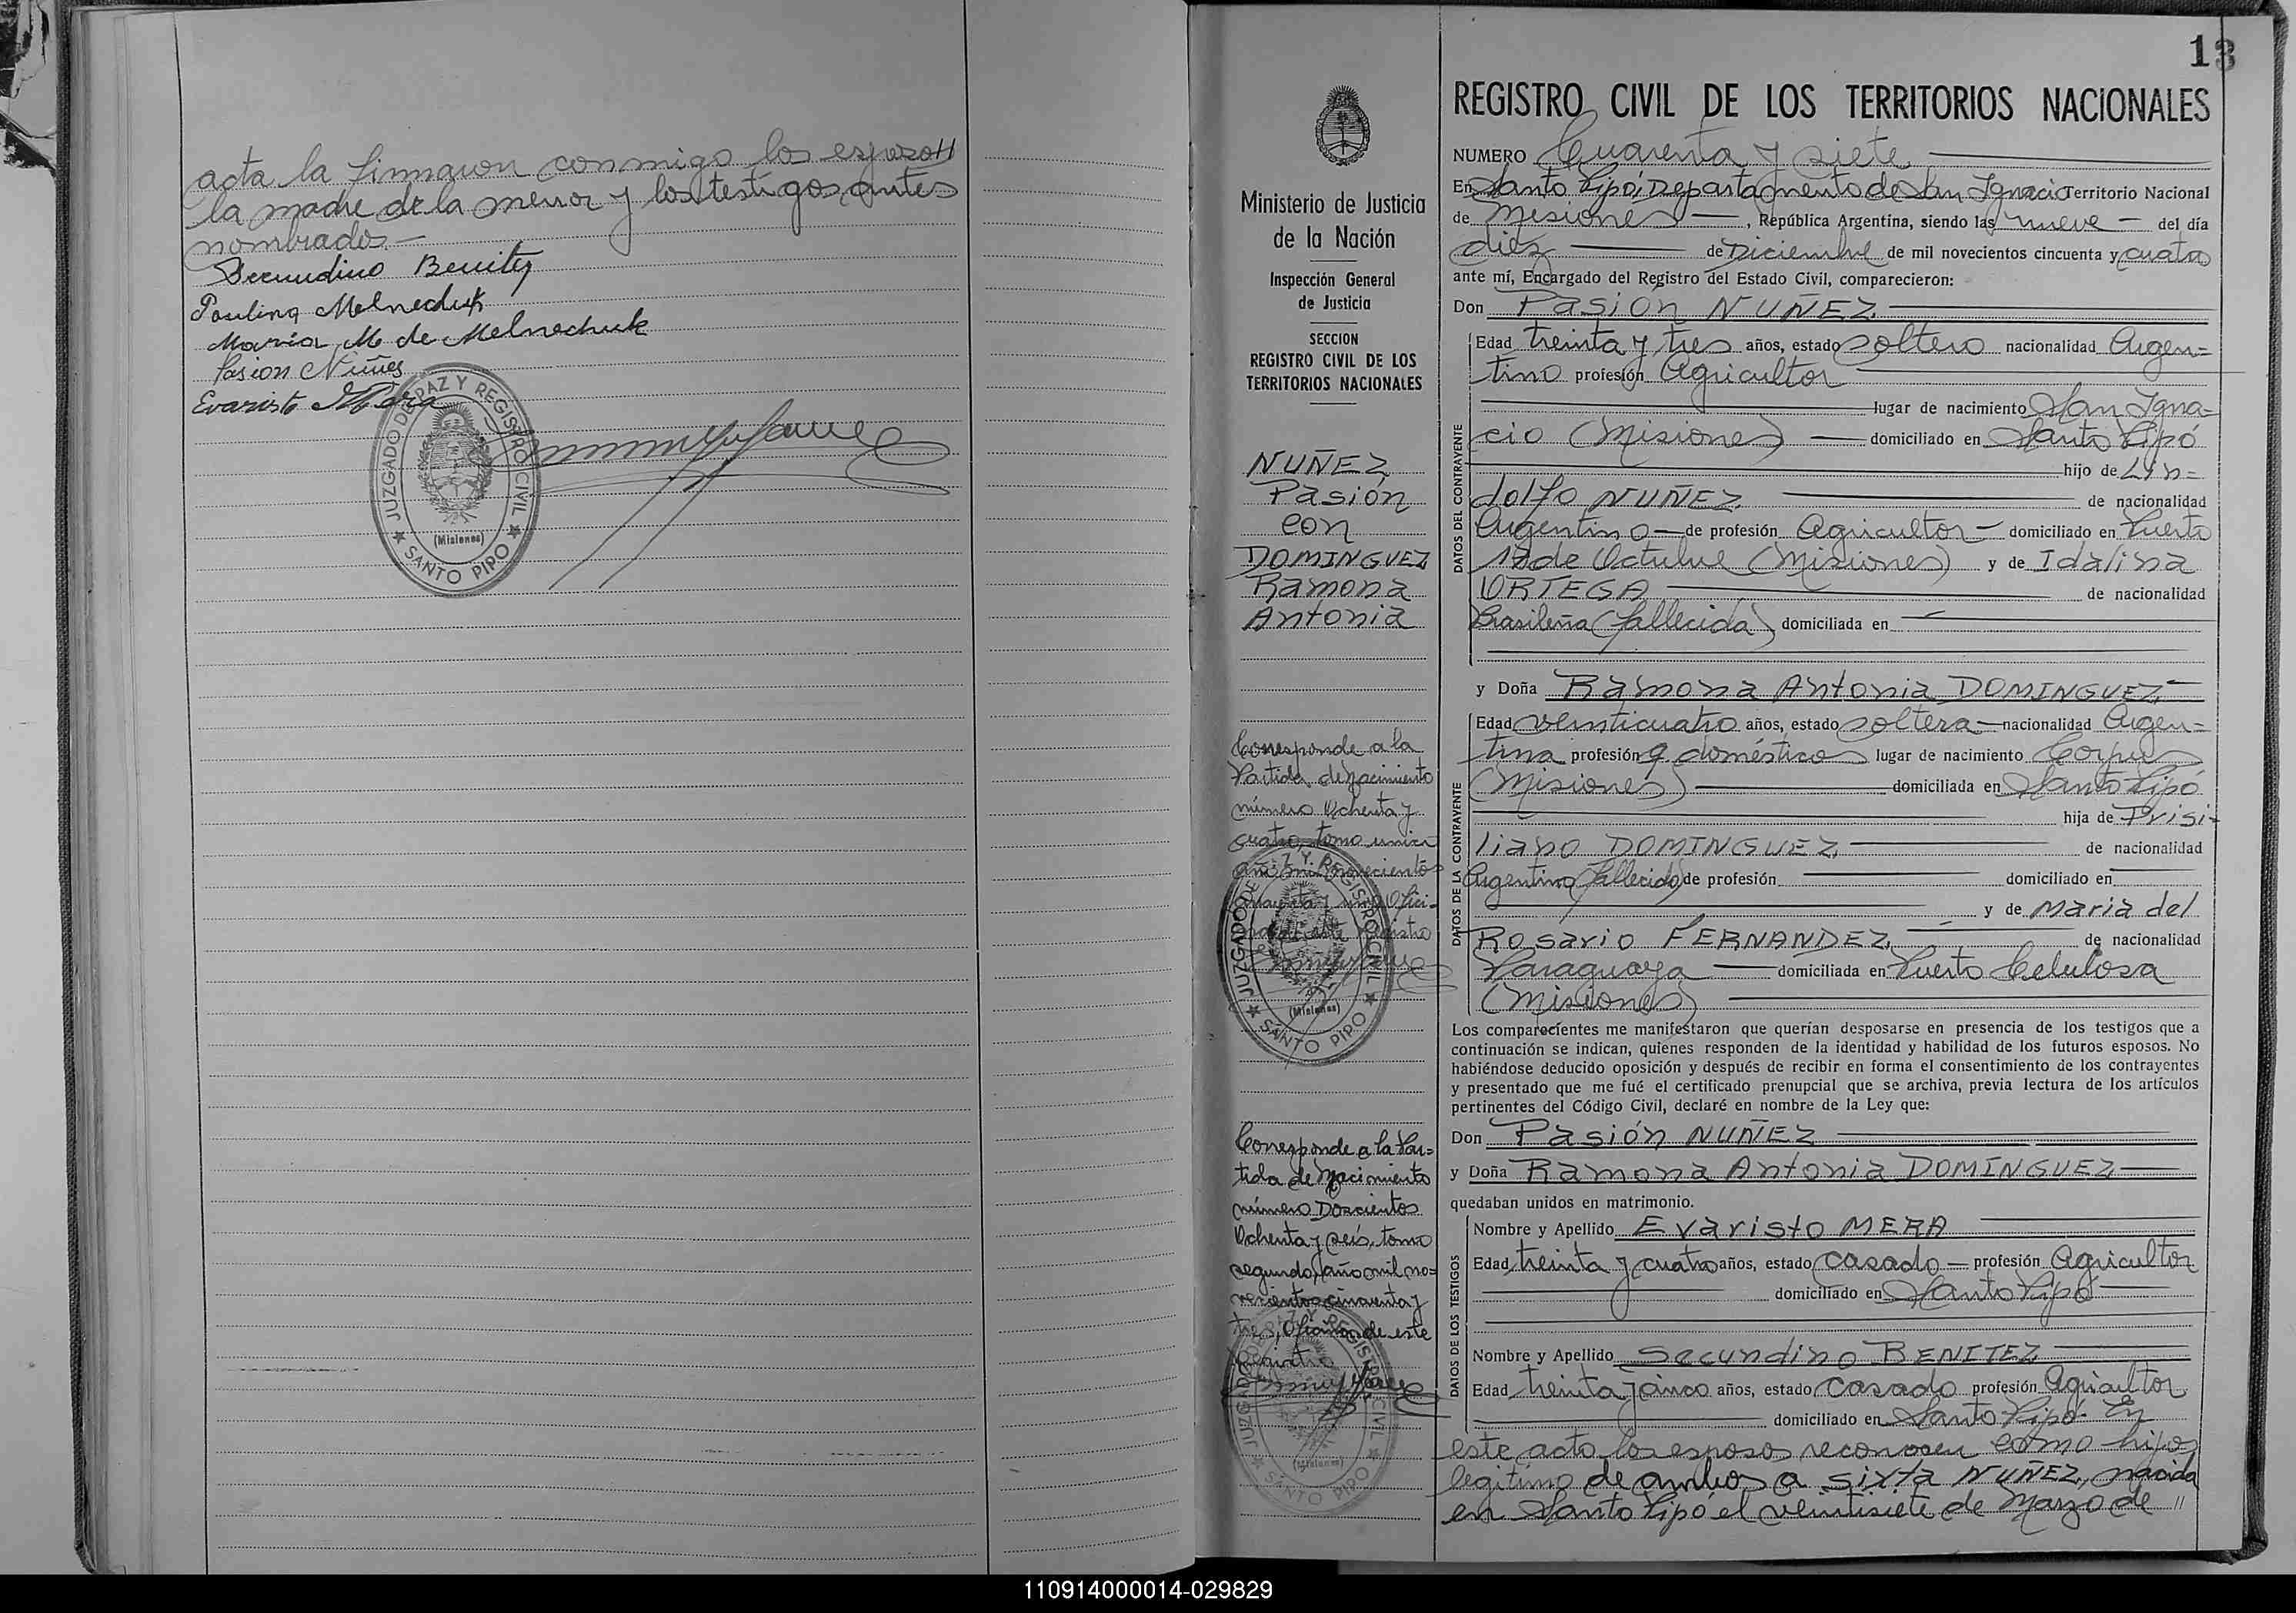 acta la firmaron conmigo los esposos
la madre de la menor y los testigos antes
nombrados.—
Secundino Benitez
Paulina Melnechuk
Maria M de Melnechuk
Pasion Nuñes
Evaristo Mera
JUZGADO DE PAZ Y REGISTRO CIVIL
(Misiones)
SANTO PIPO
13
Ministerio de Justicia
de la Nación
Inspección General
de Justicia
SECCION
REGISTRO CIVIL DE LOS
TERRITORIOS NACIONALES
NUÑEZ
Pasión
con
DOMINGUEZ
Ramona
Antonia
Corresponde a la
Partida de Nacimiento
número Ochenta y
cuatro, tomo unico
año mil novecientos
cuarenta y uno, Ofici-
de este Registro
JUZGADO DE PAZ Y REGISTRO CIVIL
(Misiones)
SANTO PIPO
Corresponde a la Par=
tida de Nacimiento
número Doscientos
Ochenta y seis, tomo
segundo, año mil no=
vecientos cincuenta y
tres, Oficina de este
Registro
JUZGADO DE PAZ Y REGISTRO CIVIL
(Misiones)
SANTO PIPO
REGISTRO CIVIL DE LOS TERRITORIOS NACIONALES
NUMERO Cuarenta y siete
En Santo Pipó, Departamento de San Ignacio Territorio Nacional
de Misiones —, República Argentina, siendo las nueve — del día
diez — de Diciembre de mil novecientos cincuenta y cuatro
ante mí, Encargado del Registro del Estado Civil, comparecieron:
Don Pasión NUÑEZ
DATOS DEL CONTRAYENTE
Edad treinta y tres años, estado soltero nacionalidad Argen=
tino profesión Agricultor
lugar de nacimiento San Igna=
cio (Misiones) — domiciliado en Santo Pipó
hijo de Lin=
dolfo NUÑEZ — de nacionalidad
Argentino — de profesión Agricultor — domiciliado en Puerto
17 de Octubre (Misiones) y de Idalina
ORTEGA — de nacionalidad
Brasileña (fallecida) domiciliada en —
y Doña Ramona Antonia DOMINGUEZ —
DATOS DE LA CONTRAYENTE
Edad veinticuatro años, estado soltera — nacionalidad Argen=
tina profesión q. domésticos lugar de nacimiento Corpus
(Misiones) — domiciliada en Santo Pipó
hija de Prisi=
liano DOMINGUEZ — de nacionalidad
Argentino (fallecido) de profesión — domiciliado en —
y de Maria del
Rosario FERNANDEZ — de nacionalidad
Paraguaya — domiciliada en Puerto Celulosa
(Misiones) —
Los comparecientes me manifestaron que querían desposarse en presencia de los testigos que a
continuación se indican, quienes responden de la identidad y habilidad de los futuros esposos. No
habiéndose deducido oposición y después de recibir en forma el consentimiento de los contrayentes
y presentado que me fué el certificado prenupcial que se archiva, previa lectura de los artículos
pertinentes del Código Civil, declaré en nombre de la Ley que:
Don Pasión NUÑEZ
y Doña Ramona Antonia DOMINGUEZ —
quedaban unidos en matrimonio.
DATOS DE LOS TESTIGOS
Nombre y Apellido Evaristo MERA
Edad treinta y cuatro años, estado casado — profesión Agricultor
domiciliado en Santo Pipó
Nombre y Apellido Secundino BENITEZ
Edad treinta y cinco años, estado casado profesión Agricultor
domiciliado en Santo Pipó. En
este acto los esposos reconocen como hijos
legitimo de ambos a Sixta NUÑEZ, nacida
en Santo Pipó el veintisiete de Marzo de "
110914000014-029829